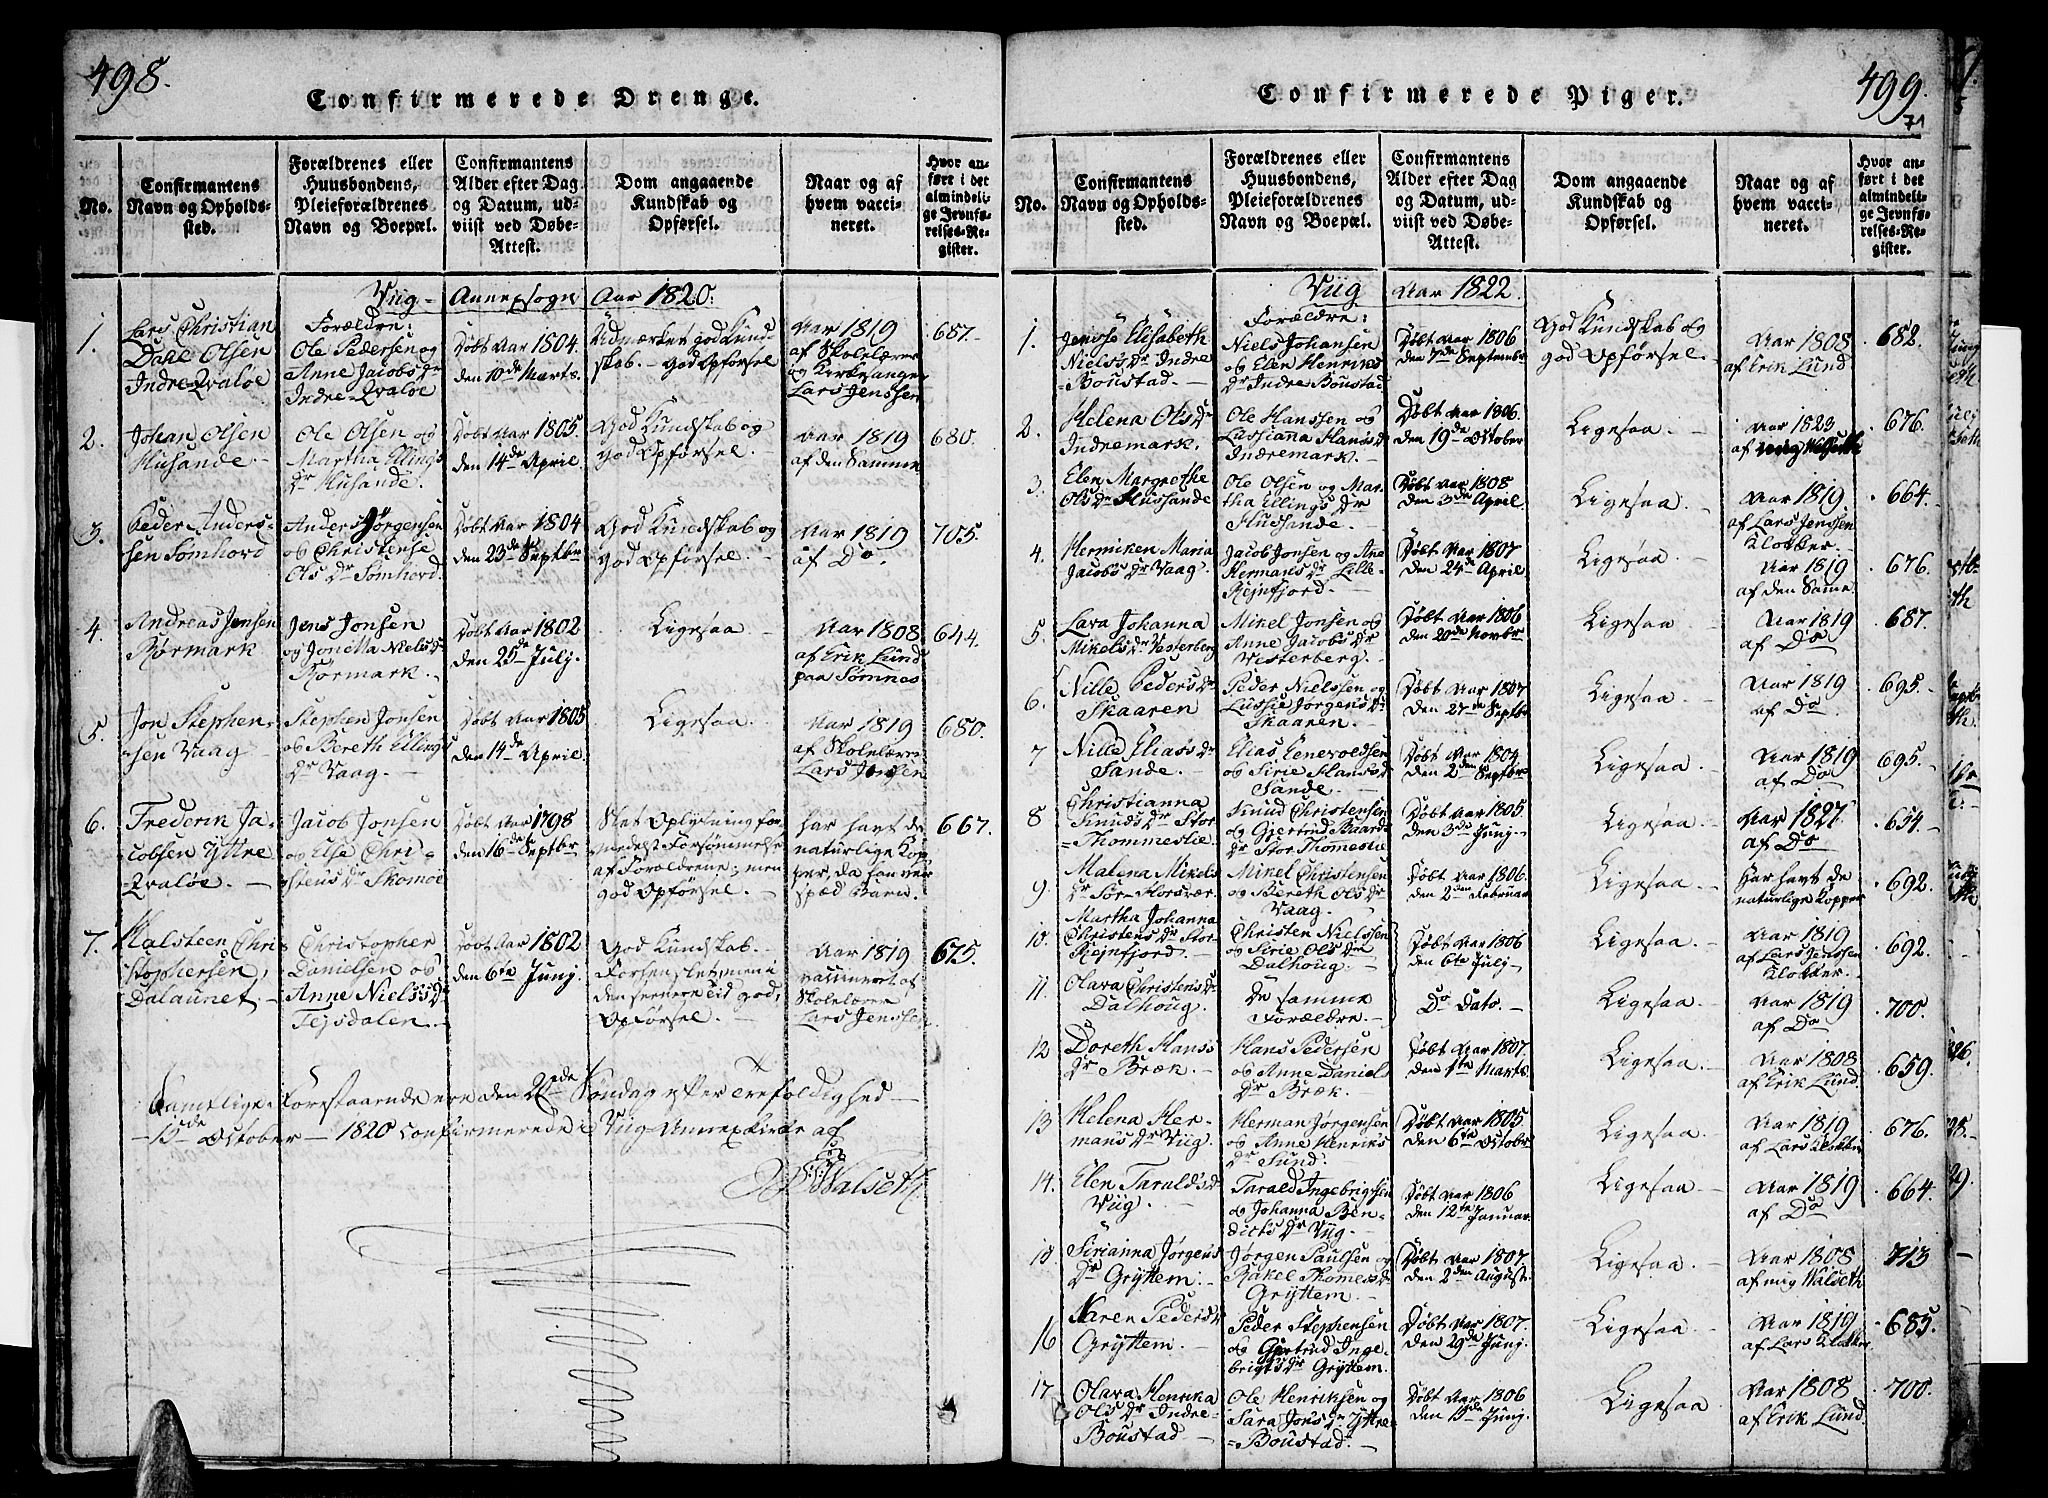 498.
Confirmerede Drenge.
No.
Confirmantens
Navn og Opholds-
sted.
Forældrenes eller
Huusbondens,
Pleieforældrenes
Navn og Boepæl.
Confirmantens
Alder efter Dag
og Datum, ud-
viist ved Døbe-
Attest.
Dom angaaende
Kundskab og
Opførsel.
Naar og af
hvem vacci-
neret.
Hvor an-
ført i det
almindeli-
ge Jevnfø-
relses-Re-
gister.
Viig Annexsogn Aar 1820:
1.
Lars Christian
Dahl Olsen
Indre Qvaløe
Forældre:
Ole Pedersen og
Anne Jacobs Dr
Indre Qvaløe
Døbt Aar 1804.
den 10de Marts.
Udmærket god Kund-
skab. - God Opførsel
Aar 1819
af Skolelærer
og Kirkesanger
Lars Jenssen
687.
2.
Johan Olsen
Husande.
Ole Olsen og
Martha Ellings
Dr Husande.
Døbt Aar 1805.
den 14de April
God Kundskab og
god Opførsel.
Aar 1819
af den Samme
680.
3.
Peder Anders-
sen Sømhord
Anders Jørgensen
og Christense
Ols Dr Sømhord.
Døbt Aar 1804
den 23de Septbr
God Kundskab og
god Opførsel.
Aar 1819
af Do.
705.
4.
Andreas Jensen
Rørmark
Jens Jonsen
og Jonetta Niels Dr
Rørmark.
Døbt Aar 1802
den 25de Julj.
Ligesaa
Aar 1808
af Erik Lund
paa Sømnes
644.
5.
Jon Stephen-
sen Vaag
Stephen Jonsen
og Bereth Ellings
Dr Vaag
Døbt Aar 1805
den 14de April.
Ligesaa
Aar 1819
af Skolelærer
Lars Jensen
680.
6.
Frederik Ja-
cobsen Ÿttre
Qvaløe.
Jacob Jonsen
og Else Chri-
stens Dr Skomoe
Døbt Aar 1798
den 16de Septbr
Slet Oplysning for-
medelst Forsømmelse
af Forældrene; men
god Opførsel.
har havt de
naturlige Kop-
per, da han var
spæd Barn.
667.
7.
Halsteen Chri-
stophersen,
Dalaunet.
Christopher
Danielsen og
Anne Niels Dr
Tejsdalen.
Døbt Aar 1802
den 6te Junj.
God Kundskab.
Forhen slet, men i
den senere Tid god,
Opførsel.
Aar 1819
vaccineret af
Skolelærer
Lars Jenssen
675.
Samtlige Forestaaende ere den 20de Søndag efter Trefoldighed
15de October 1820 Confirmerede i Viig Annexkirke af
Walseth
499.
71
Confirmerede Piger.
No.
Confirmantens
Navn og Opholds-
sted.
Forældrenes eller
Huusbondens,
Pleieforældrenes
Navn og Boepæl.
Confirmantens
Alder efter Dag
og Datum, ud-
viist ved Døbe-
Attest.
Dom angaaende
Kundskab og
Opførsel.
Naar og af
hvem vacci-
neret.
Hvor an-
ført i det
almindeli-
ge Jevnfø-
relses-Re-
gister.
Viig Aar 1822.
1.
Jensse Elisabeth
Niels Dr Indre
Boustad.
Forældre:
Niels Johansen
og Elen Henriks
Dr Indre Boustad
Døbt Aar 1806
den 7de Septembr
God Kundskab og
god Opførsel.
Aar 1808
af Erik Lund
682.
2.
Helena Ols Dr
Indremark.
Ole Hanssen og
Lassianna Hans Dr
Indremark.
Døbt Aar 1806.
den 19de October
Ligesaa
Aar 1823
af mig Walseth
676.
3.
Elen Margrethe
Ols Dr Hussande
Ole Olsen og Mar-
tha Ellings Dr
Hussande.
Døbt Aar 1808
den 3de April.
Ligesaa
Aar 1819
af Lars Jenssen
Klokker.
664.
4.
Hermiken Maria
Jacobs Dr Vaag.
Jacob Jonsen og Ane
Hermans Dr Lille-
Rejnfjord.
Døbt Aar 1807
den 24de April
Ligesaa
Aar 1819
af den Same.
676.
5.
Lara Johanna
Mikels Dr Vesterberg
Mikel Jonsen og
Anne Jacobs Dr
Westerberg.
Døbt Aar 1806
den 20de Novbr
Ligesaa
Aar 1819
af Do
687.
6.
Nille Peders Dr
Skaaren
Peder Nielssen og
Lussie Jørgens Dr
Skaaren.
Døbt Aar 1807
den 27de Septbr
Ligesaa
Aar 1819
af Do
695.
7
Nille Elias Dr
Sande.
Elias Enevoldsen
og Sirie Hans Dr
Sande.
Døbt Aar 1804.
den 2den Septbr
Ligesaa
Aar 1819
af Do
695.
8
Christianna
Knuds Dr Stor
Thommeslie.
Knud Christensen
og Gjertrud Baards
Dr Stor Thomeslie
Døbt Aar 1805.
den 3de Junj.
Ligesaa
Aar 1827.
af Do
654.
9.
Malena Mikels
Dr Sør-Horsvær.
Mikel Christensen
og Bereth Ols Dr
Vaag.
Døbt Aar 1806.
den 2den Februar
Ligesaa
Har havt de
naturlige Kopper
692.
10.
Martha Johanna
Christens Dr Stor-
Rejnfjord.
Christen Nielssen
og Sirie Ols Dr
Dalhoug.
Døbt Aar 1806
den 6te Julj
Ligesaa
Aar 1819
af Lars Jenssen
Klokker.
692.
11.
Olava Christens Dr
Dalhoug.
De samme
Forældre.
Do Dato.
Ligesaa
Aar 1819
af Do
700.
12
Doreth Hans
Dr Bræk.
Hans Pedersen
og Anne Daniels
Dr Bræk.
Døbt Aar 1807.
den 1ste Marts.
Ligesaa
Aar 1808
af Erik Lund.
659.
13
Helena Her-
mans Dr Viig.
Herman Jørgensen
og Anne Henriks
Dr Sund.
Døbt Aar 1805
den 6te Octobr
Ligesaa
Aar 1819
af Lars Klokker
676.
14.
Elen Taralds Dr
Viig.
Tarald Ingebrigsen
og Johanna Ben-
dicts Dr Viig.
Døbt Aar 1806
den 12te Januar.
Ligesaa
Aar 1819
af Do
664.
15.
Sirianna Jørgens
Dr Grÿttem.
Jørgen Paulsen og
Rakel Thomes Dr
Grÿttem.
Døbt Aar 1807
den 2den August.
Ligesaa
Aar 1808
af mig Walseth
713
16
Karen Peders Dr
Grÿttem.
Peder Stephensen
og Gjertrud Inge-
brigts Dr Grÿttem.
Døbt Aar 1807.
den 29de Junj.
Ligesaa
Aar 1819
af Lars Klokker.
685.
17
Olava Henrika
Ols Dr Indre-
Boustad
Ole Henriksen og
Sara Jons Dr Ÿttre
Boustad.
Døbt Aar 1806
den 15de Junj.
Ligesaa
Aar 1808
af Erik Lund.
700.